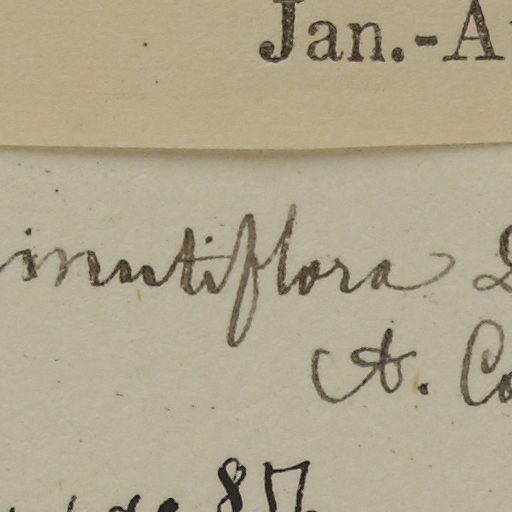 Jan.-A
inutiflora
A. Co
87